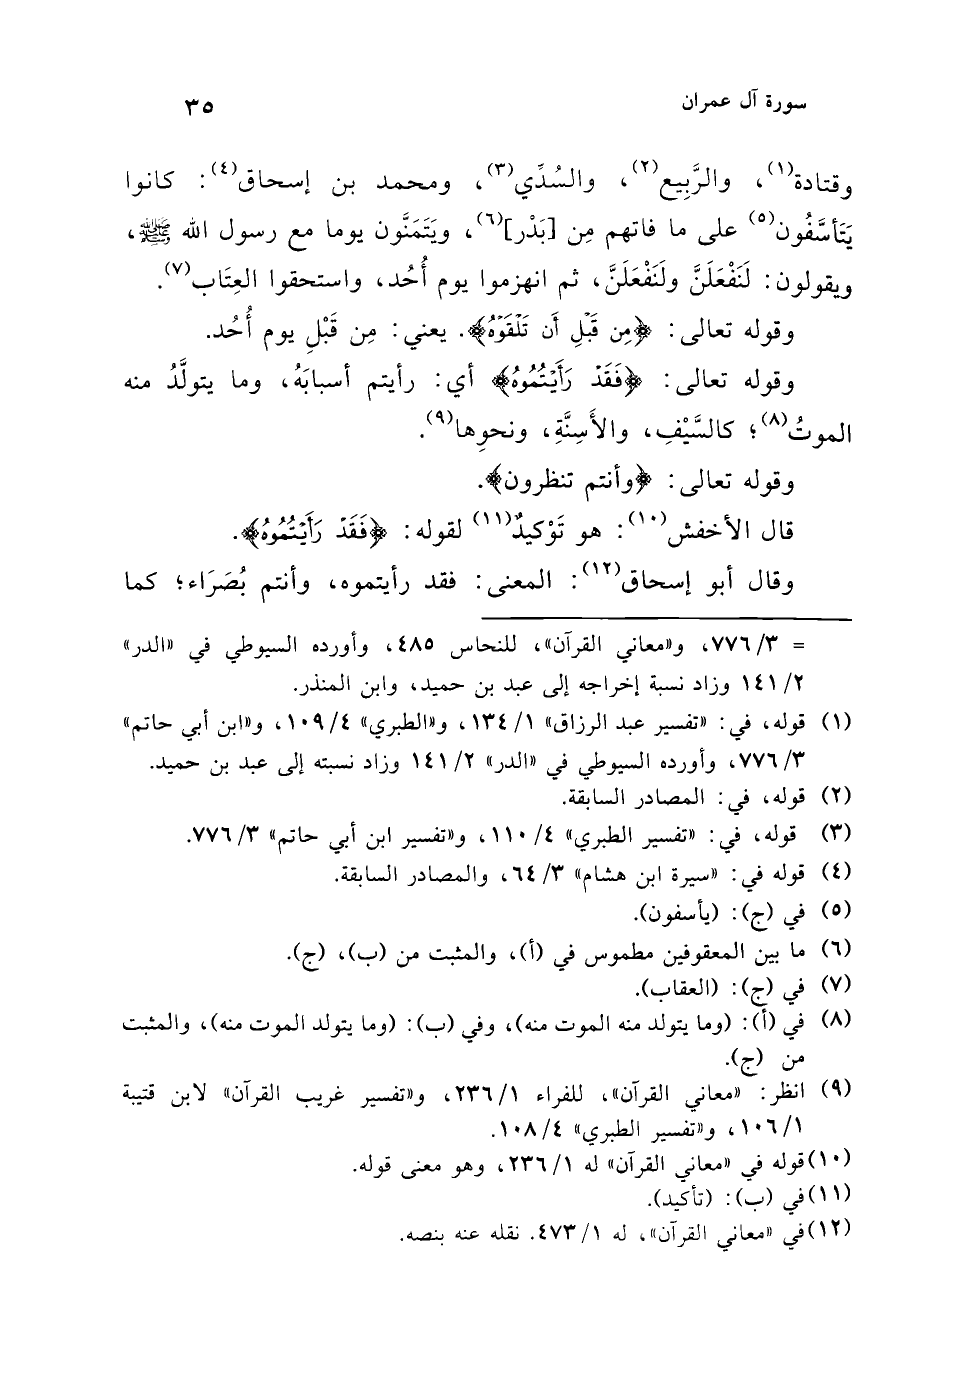 سورة آل عمران ٣٥
وقتادة(١)، والرَّبِيع(٢)، والسُدِّي(٣)، ومحمد بن إسحاق(٤): كانوا
يَتَأسَّفُون(٥) على ما فاتهم مِن [بَدْر](٦)، ويَتَمَنَّون يوما مع رسول الله ﷺ،
ويقولون: لَنَفْعَلَنَّ ولَنَفْعَلَنَّ، ثم انهزموا يوم أُحُد، واستحقوا العِتَاب(٧).
وقوله تعالى: ﴿مِن قَبْلِ أَن تَلْقَوْهُ﴾. يعني: مِن قَبْلِ يوم أُحُد.
وقوله تعالى: ﴿فَقَدْ رَأَيْتُمُوهُ﴾ أي: رأيتم أسبابَهُ، وما يتولَّدُ منه
الموتُ(٨)؛ كالسَّيْفِ، والأَسِنَّةِ، ونحوِها(٩).
وقوله تعالى: ﴿وأنتم تنظرون﴾.
قال الأخفش(١٠): هو تَوْكيدٌ(١١) لقوله: ﴿فَقَدْ رَأَيْتُمُوهُ﴾.
وقال أبو إسحاق(١٢): المعنى: فقد رأيتموه، وأنتم بُصَرَاء؛ كما
= ٣/ ٧٧٦، و«معاني القرآن»، للنحاس ٤٨٥، وأورده السيوطي في «الدر»
٢/ ١٤١ وزاد نسبة إخراجه إلى عبد بن حميد، وابن المنذر.
(١) قوله، في: «تفسير عبد الرزاق» ١/ ١٣٤، و«الطبري» ٤/ ١٠٩، و«ابن أبي حاتم»
٣/ ٧٧٦، وأورده السيوطي في «الدر» ٢/ ١٤١ وزاد نسبته إلى عبد بن حميد.
(٢) قوله، في: المصادر السابقة.
(٣) قوله، في: «تفسير الطبري» ٤/ ١١٠، و«تفسير ابن أبي حاتم» ٣/ ٧٧٦.
(٤) قوله في: «سيرة ابن هشام» ٣/ ٦٤، والمصادر السابقة.
(٥) في (ج): (يأسفون).
(٦) ما بين المعقوفين مطموس في (أ)، والمثبت من (ب)، (ج).
(٧) في (ج): (العقاب).
(٨) في (أ): (وما يتولد منه الموت منه)، وفي (ب): (وما يتولد الموت منه)، والمثبت
من (ج).
(٩) انظر: «معاني القرآن»، للفراء ١/ ٢٣٦، و«تفسير غريب القرآن» لابن قتيبة
١/ ١٠٦، و«تفسير الطبري» ٤/ ١٠٨.
(١٠) قوله في «معاني القرآن» له ١/ ٢٣٦، وهو معنى قوله.
(١١) في (ب): (تأكيد).
(١٢) في «معاني القرآن»، له ١/ ٤٧٣. نقله عنه بنصه.